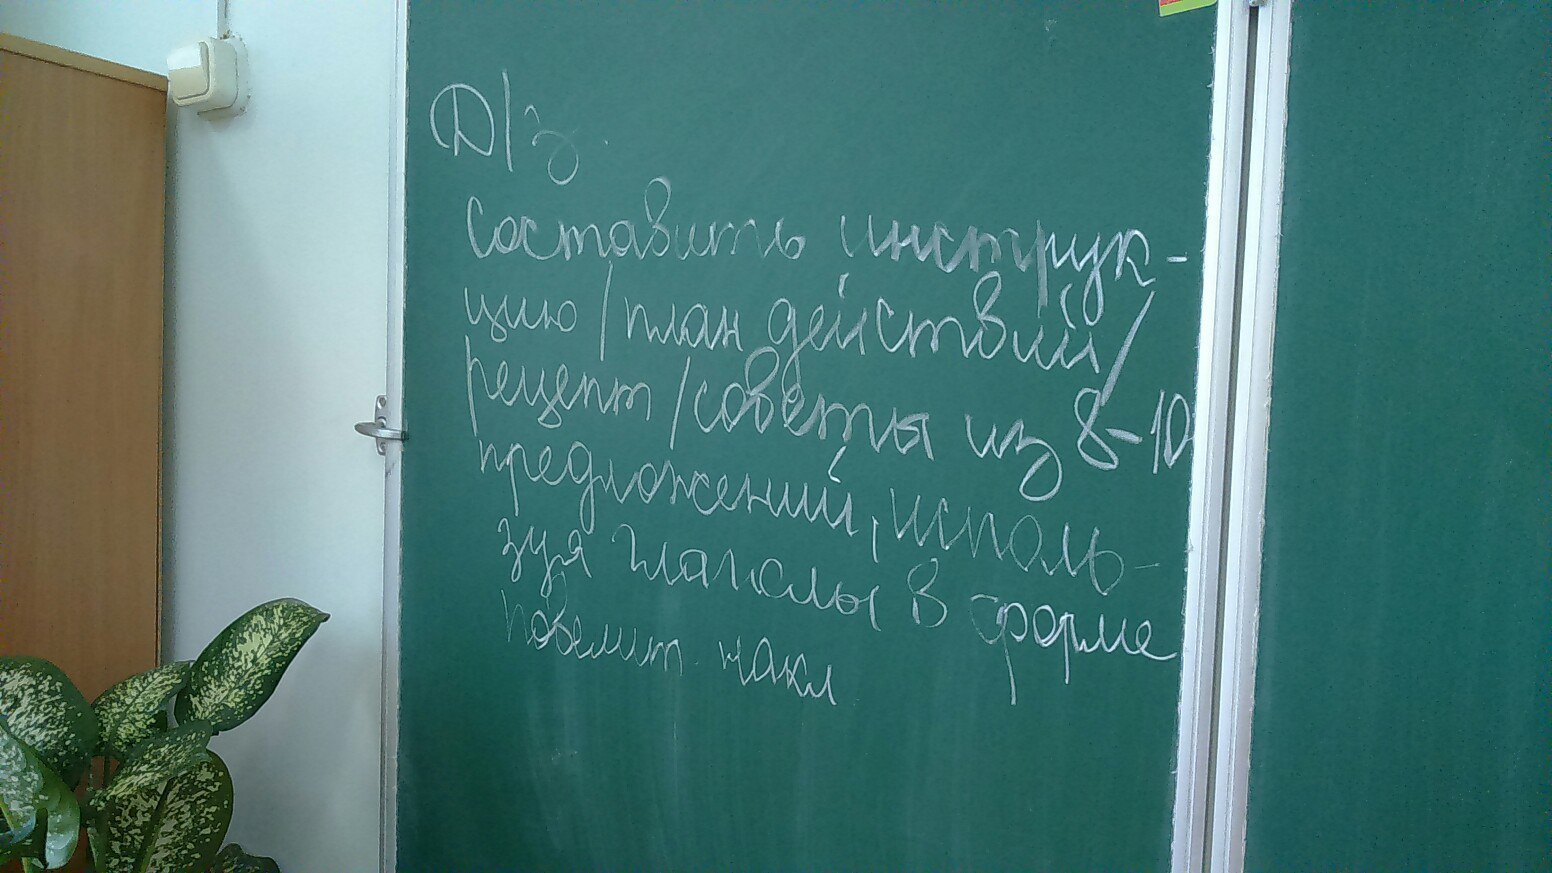 Д/з.
Составить инструк-
цию/план действий/
рецепт/советы из 8-10
предложений, исполь-
зуя глаголы в форме
повелит. накл